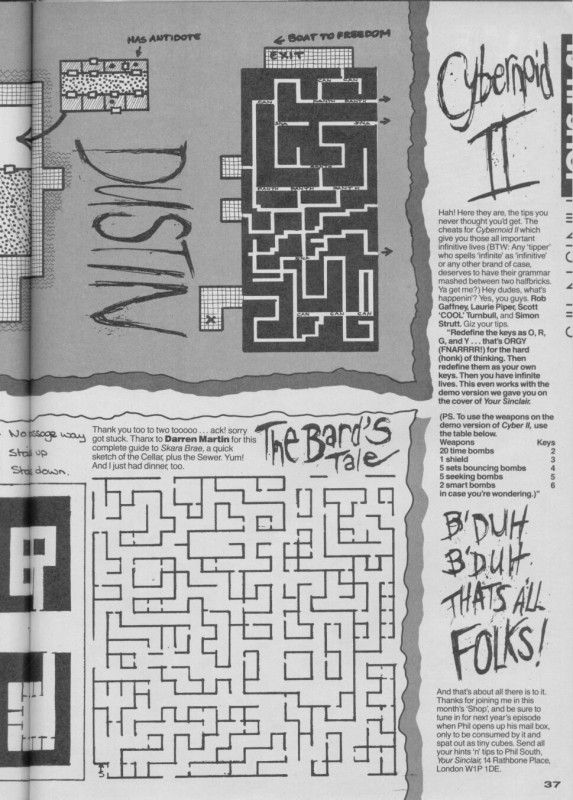 HAS ANTIDOTE
← BOAT TO FREEDOM
EXIT
CAN CAN
CAN PANTH PANTH
ENA ENA
PANTH
PANTH PANTH PANTH
ENA
CAN CAN CAN
X
DUSTIN
Cybernoid
II
Hah! Here they are, the tips you
never thought you'd get. The
cheats for Cybernoid II which
give you those all important
infinitive lives (BTW: Any 'tipper'
who spells 'infinite' as 'infinitive'
or any other brand of case,
deserves to have their grammar
mashed between two halfbricks.
Ya get me?) Hey dudes, what's
happenin'? Yes, you guys. Rob
Gaffney, Laurie Piper, Scott
'COOL' Turnbull, and Simon
Strutt. Giz your tips.
"Redefine the keys as O, R,
G, and Y . . . that's ORGY
(FNARRRR!) for the hard
(honk) of thinking. Then
redefine them as your own
keys. Then you have infinite
lives. This even works with the
demo version we gave you on
the cover of Your Sinclair.
(PS. To use the weapons on the
demo version of Cyber II, use
the table below.
Weapons Keys
20 time bombs 2
1 shield 3
5 sets bouncing bombs 4
5 seeking bombs 5
2 smart bombs 6
in case you're wondering.)"
B'DUH
B'DUH
THATS ALL
FOLKS!
And that's about all there is to it.
Thanks for joining me in this
month's 'Shop', and be sure to
tune in for next year's episode
when Phil opens up his mail box,
only to be consumed by it and
spat out as tiny cubes. Send all
your hints 'n' tips to Phil South,
Your Sinclair, 14 Rathbone Place,
London W1P 1DE.
way
up
down.
Thank you too to two tooooo . . . ack! sorry
got stuck. Thanx to Darren Martin for this
complete guide to Skara Brae, a quick
sketch of the Cellar, plus the Sewer. Yum!
And I just had dinner, too.
The Bard's
Tale
S
37